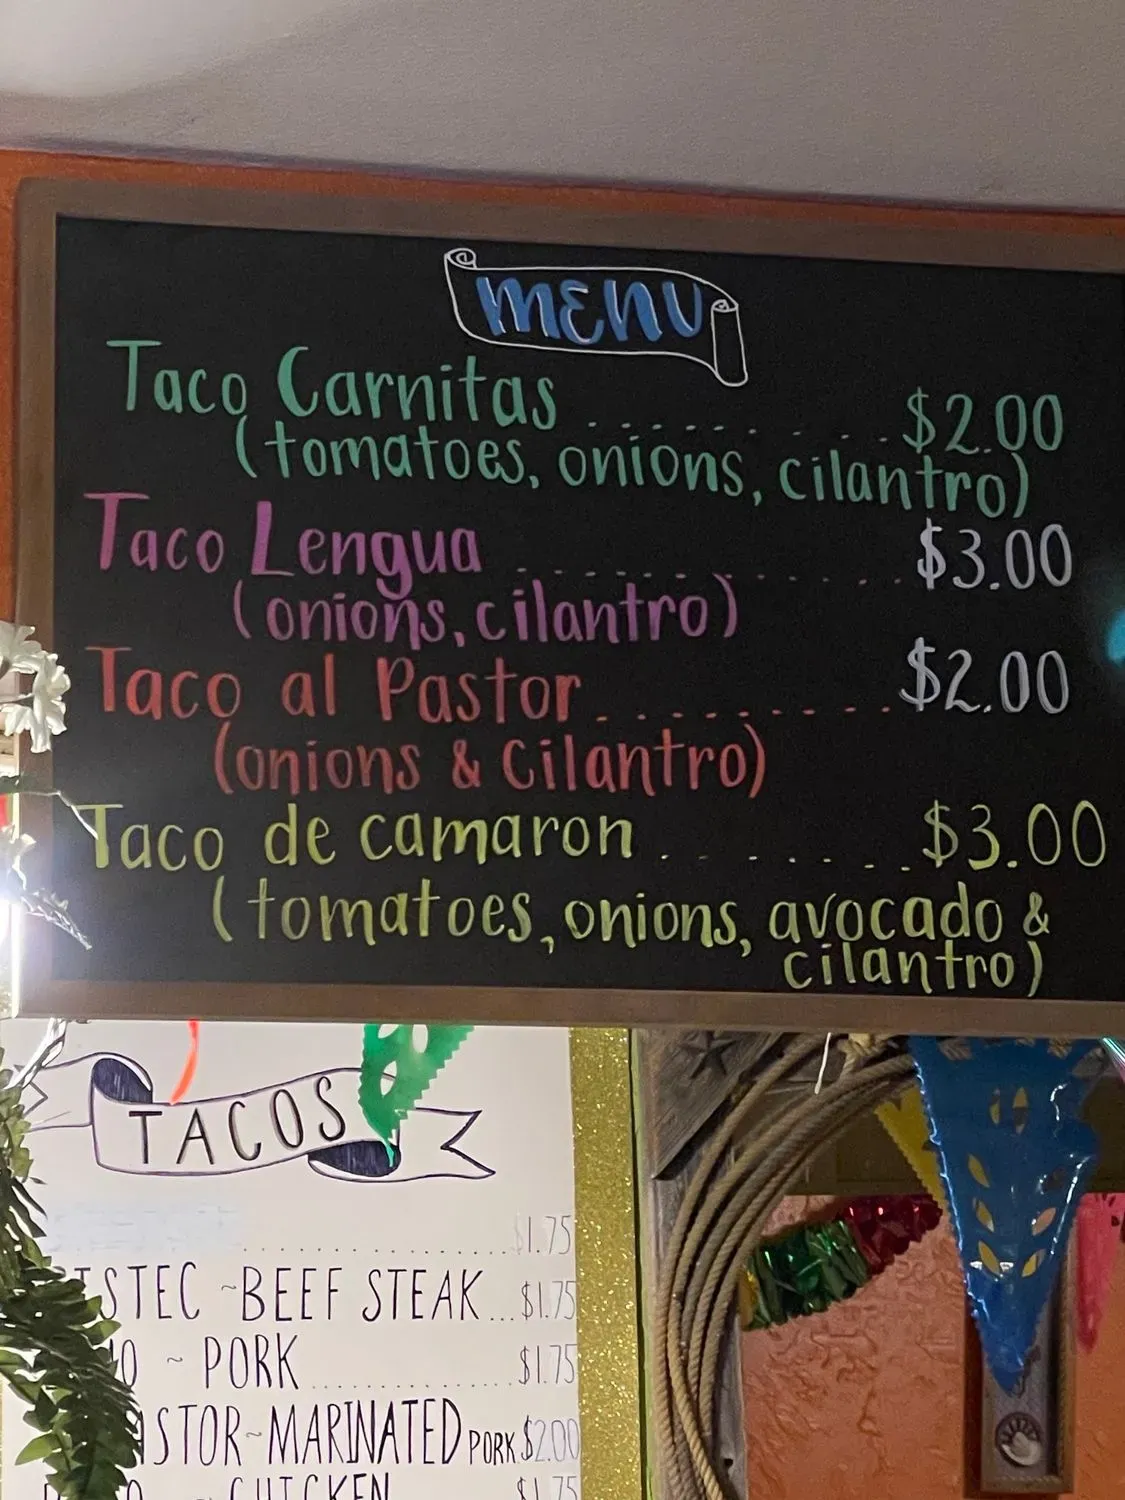 MENU
Taco Carnitas ......... $2.00
(tomatoes, onions, cilantro)
Taco Lengua ............ $3.00
(onions, cilantro)
Taco al Pastor ......... $2.00
(onions & cilantro)
Taco de camaron ....... $3.00
(tomatoes, onions, avocado &
cilantro)
TACOS
$1.75
BEEF STEAK...$1.75
~ PORK................$1.75
~MARINATED PORK.$2.00
~ CHICKEN $1.75